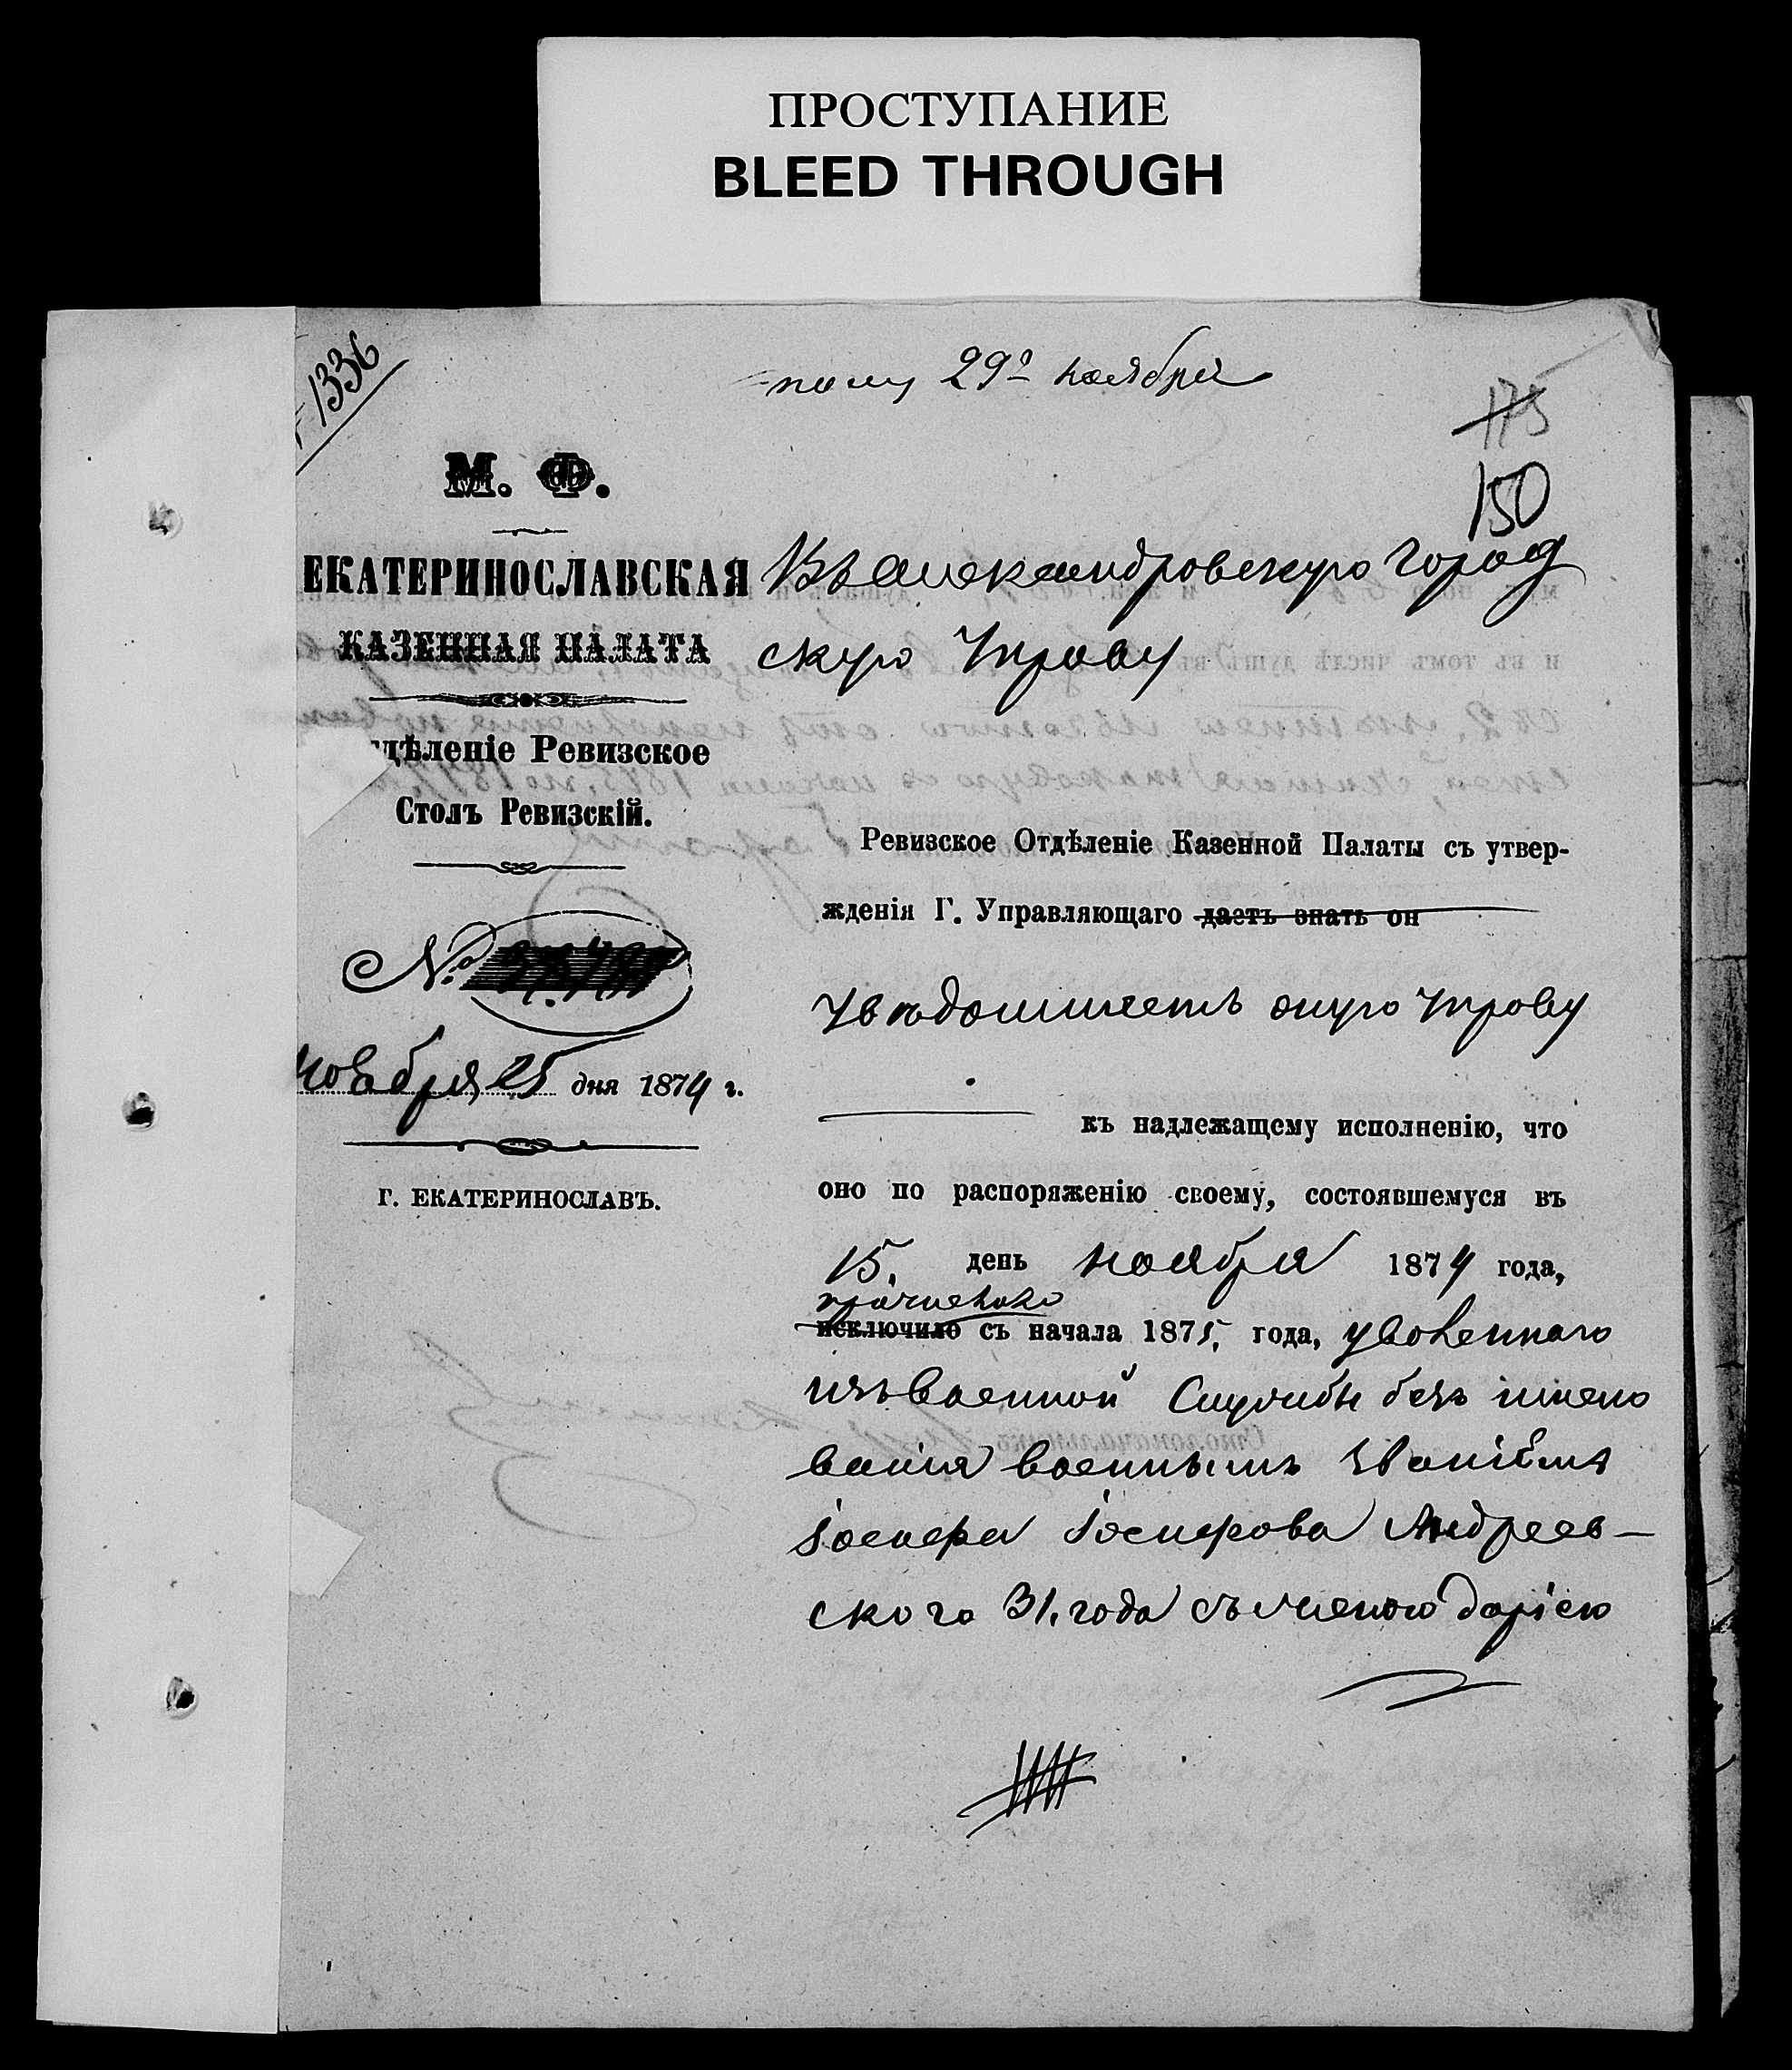 ПРОСТУПАНИЕ
BLEED THROUGH
1336
полу 29º ноября
175
150
М. Ф.
ЕКАТЕРИНОСЛАВСКАЯ
КАЗЕННАЯ ПАЛАТА
дѣленіе Ревизское
Столъ Ревизскій.
№
ноября 25 дня 1874 г.
Г. ЕКАТЕРИНОСЛАВЪ.
Въ Александровскую город
скую Управу
Ревизское Отдѣленіе Казенной Палаты съ утвер-
жденія Г. Управляющаго даетъ знать он
Увѣдомляетъ оную Управу
къ надлежащему исполненію, что
оно по распоряженію своему, состоявшемуся въ
15. день ноября 1874 года,
причислило
исключило съ начала 1875. года, уволеннаго
изъ военной Службы безъ имено
ванія военнымъ званіемъ
Іосифа Іосифова Андреев-
ского 31. года съ женою Даріею